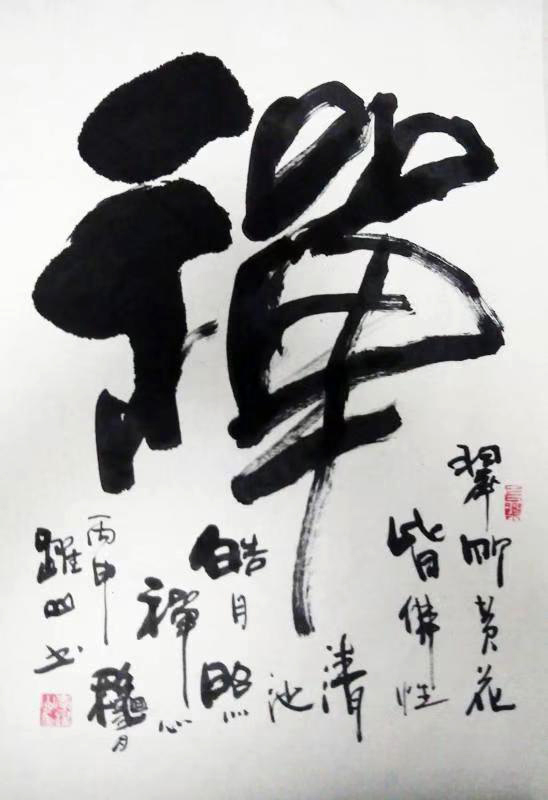 禪
翠竹黄花
皆佛性
清
池
皓月照
禪心
丙申龝月
躍 书